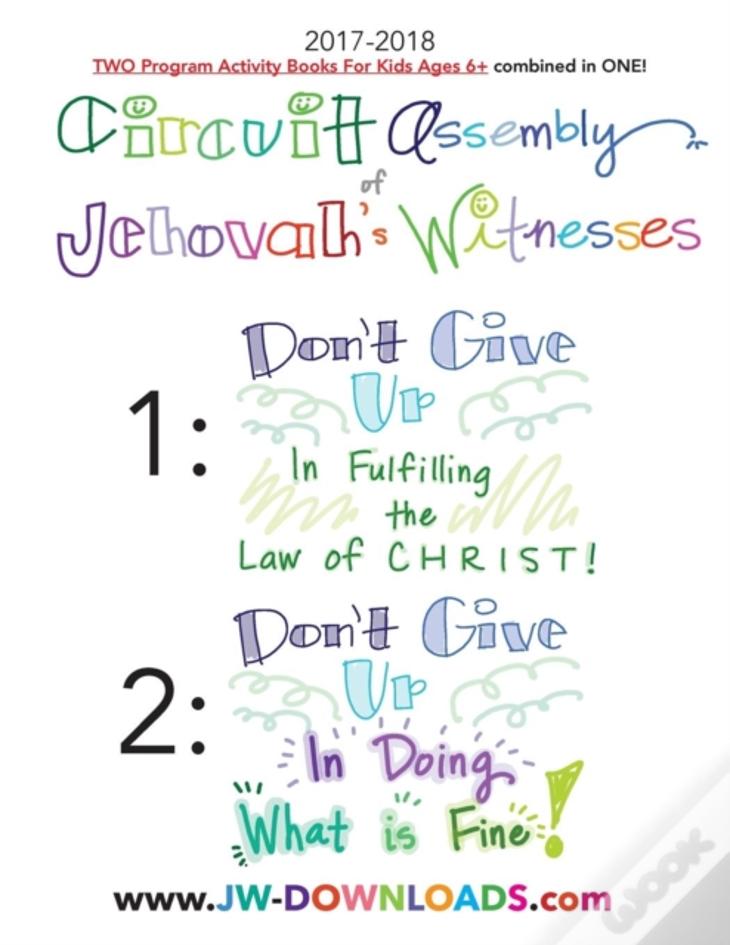 2017-2018
TWO Program Activity Books For Kids Ages 6+ combined in ONE!
Circuit Assembly
of
Jehovah's Witnesses
1:
Don't Give
Up
In Fulfilling
the
Law of CHRIST!
2:
Don't Give
Up
In Doing
What is Fine!
www.JW-DOWNLOADS.com
WOOK